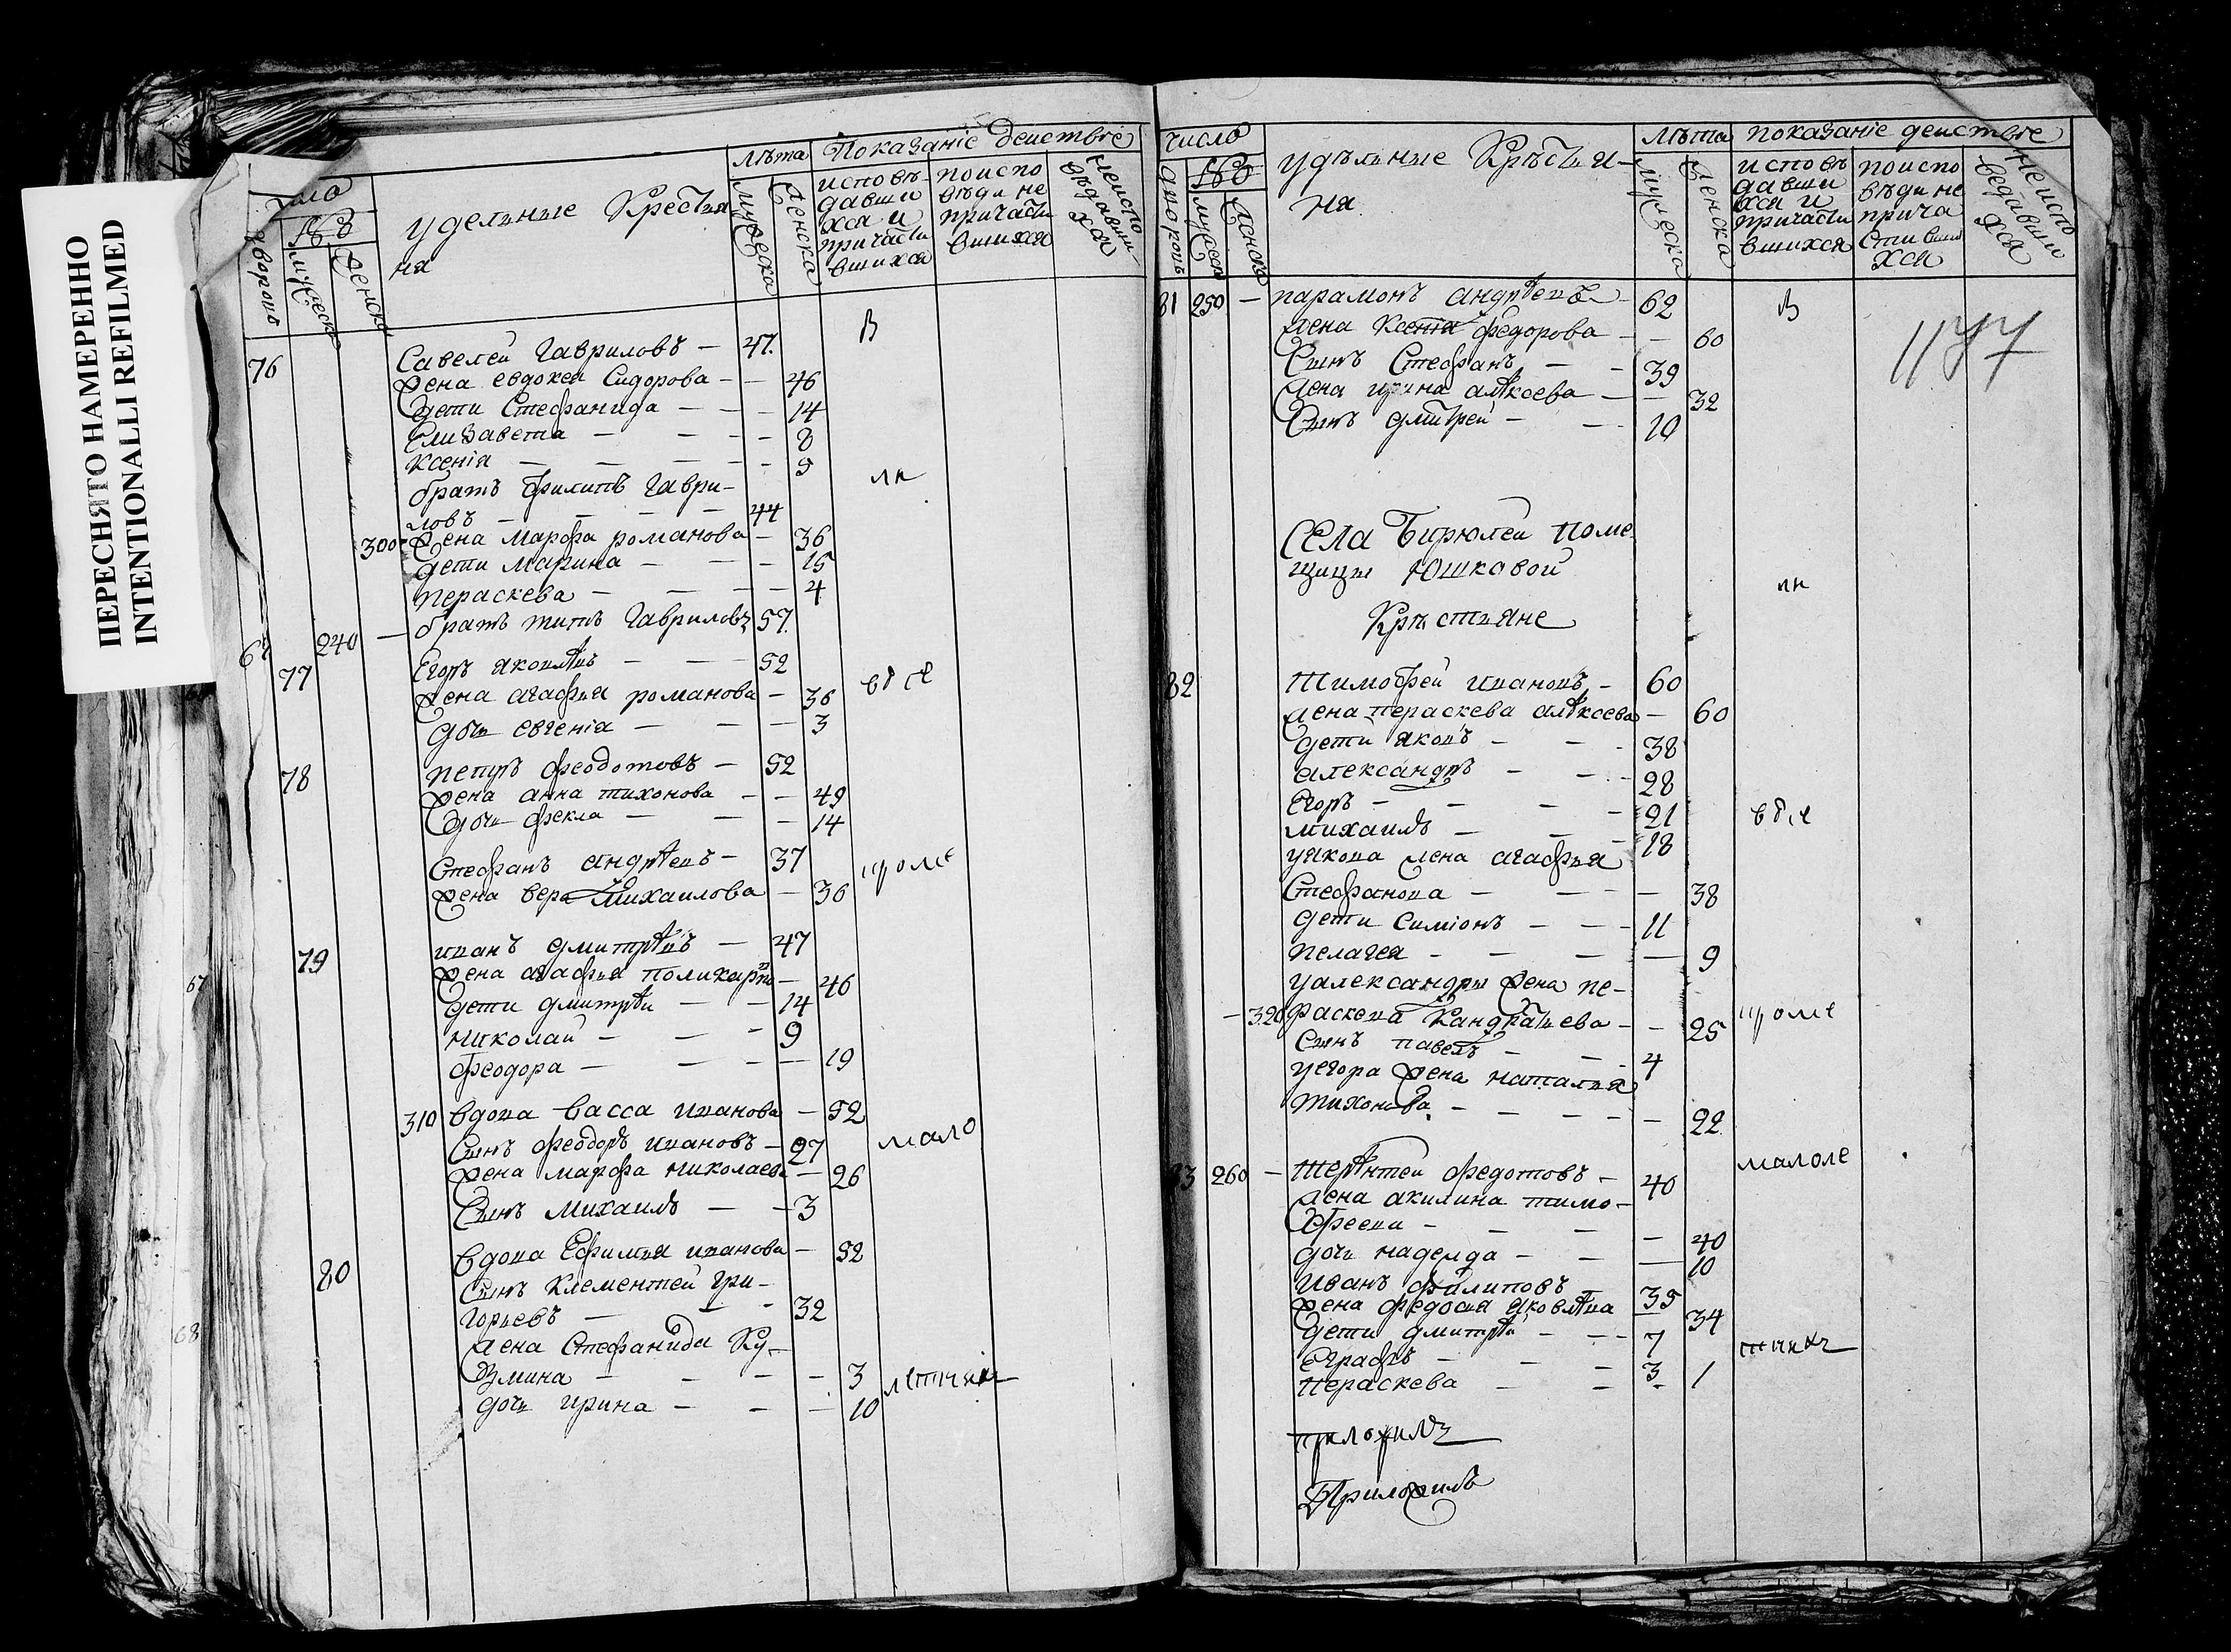 ПЕРЕСНЯТО НАМЕРЕННО
INTENTIONALLI REFILMED
удельные Крестья
ня
Лѣта Показанiе действiе
мужеска
женска
исповѣ
давши
хся и
причасти
вшихся
поиспо
вѣди не
причасти
вшихся
неиспо
вѣдавши
хся
76 Савелей Гавриловъ — 47.
жена евдокея Сидорова — — 46
дети Стефанида — — — 14
Елизавета — — — — 8
ксенiя — — — — — 5
братъ филипъ Гаври-
ловъ — — — — 44
300 жена марфа романова — 36
дети марина — — — 15
пераскева — — — — 4
240 — братъ титъ Гавриловъ 57.
77 Егоръ яковлѣвъ — — 52
жена агафья романова — 36
дочь евгенiя — — — 3
78 петръ феодотовъ — 52
жена анна тихонова — — 49
дочь фекла — — — 14
Стефанъ андрѣевъ — 37
жена вера Михаилова — 36
79 иванъ дмитрѣвъ — 47
жена агафья поликарпо — 46
дети дмитрѣи — — 14
николаи — — — 9
феодора — — — — 19
310 вдова васса иванова — 52
Сынъ феодоръ ивановъ — 27
жена марфа николаева — 26
Сынъ михаилъ — — 3
80 вдова Ефимья иванова — 52
Сынъ клементей гри-
горьевъ — — — 32
жена Стефанида Ку-
змина — — — — 3
дочь ирина — — — 10
В
ли
вбсе
проме
мало
лѣтных
число
дворовъ
мужеска
женска
удѣльные Крѣстья-
ня
Лѣта показанiе действiе
мужеска
женска
исповѣ
давши
хся и
причасти
вшихся
поиспо
вѣди не
прича
стивши
хся
неиспо
ведавши
хся
81 250 — парамонъ андрѣевъ — 62
жена Ксения федорова — — 60
Сынъ Стефанъ — — 39
жена ирина алѣксеева — — 32
Сынъ дмитрей — — 10
1177
Села Бирюлей поме
щицы Юшковой
Крѣстьяне
82 Тимофей ивановъ — 60
жена пераскева алѣксеева — 60
дети яковъ — — 38
александръ — — 28
Егоръ — — — 21
михаилъ — — — 18
уякова жена агафья
Стефанова — — — — 38
дети Симiонъ — — — 11
пелагея — — — — 9
уалександры жена пе-
— 320 раскева Кандратьева — — 25
Сынъ павелъ — — 4
уегора жена наталья
тихонова — — — — — 22
83 260 — терѣнтей федотовъ — 40
жена акилина тимо-
фееви — — — — 40
дочь надежда — — — 10
иванъ филиповъ — 35
жена федосья яковлѣва — 34
дети дмитрѣи — — — 7
Еграфъ — — — 3
пераскева — — — 1
В
ли
вбсе
проме
малоле
тных
приложилъ
Приложилъ